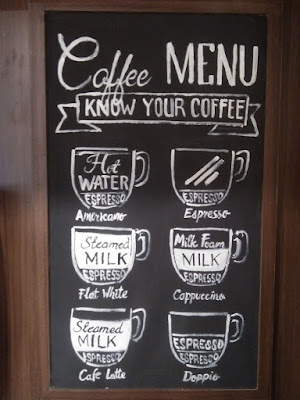 Coffee MENU
KNOW YOUR COFFEE
Hot
WATER
ESPRESSO
Americano
ESPRESSO
Espresso
Steamed
MILK
ESPRESSO
Flat White
Milk Foam
MILK
ESPRESSO
Cappuccino
Steamed
MILK
ESPRESSO
Cafe Latte
ESPRESSO
ESPRESSO
Doppio